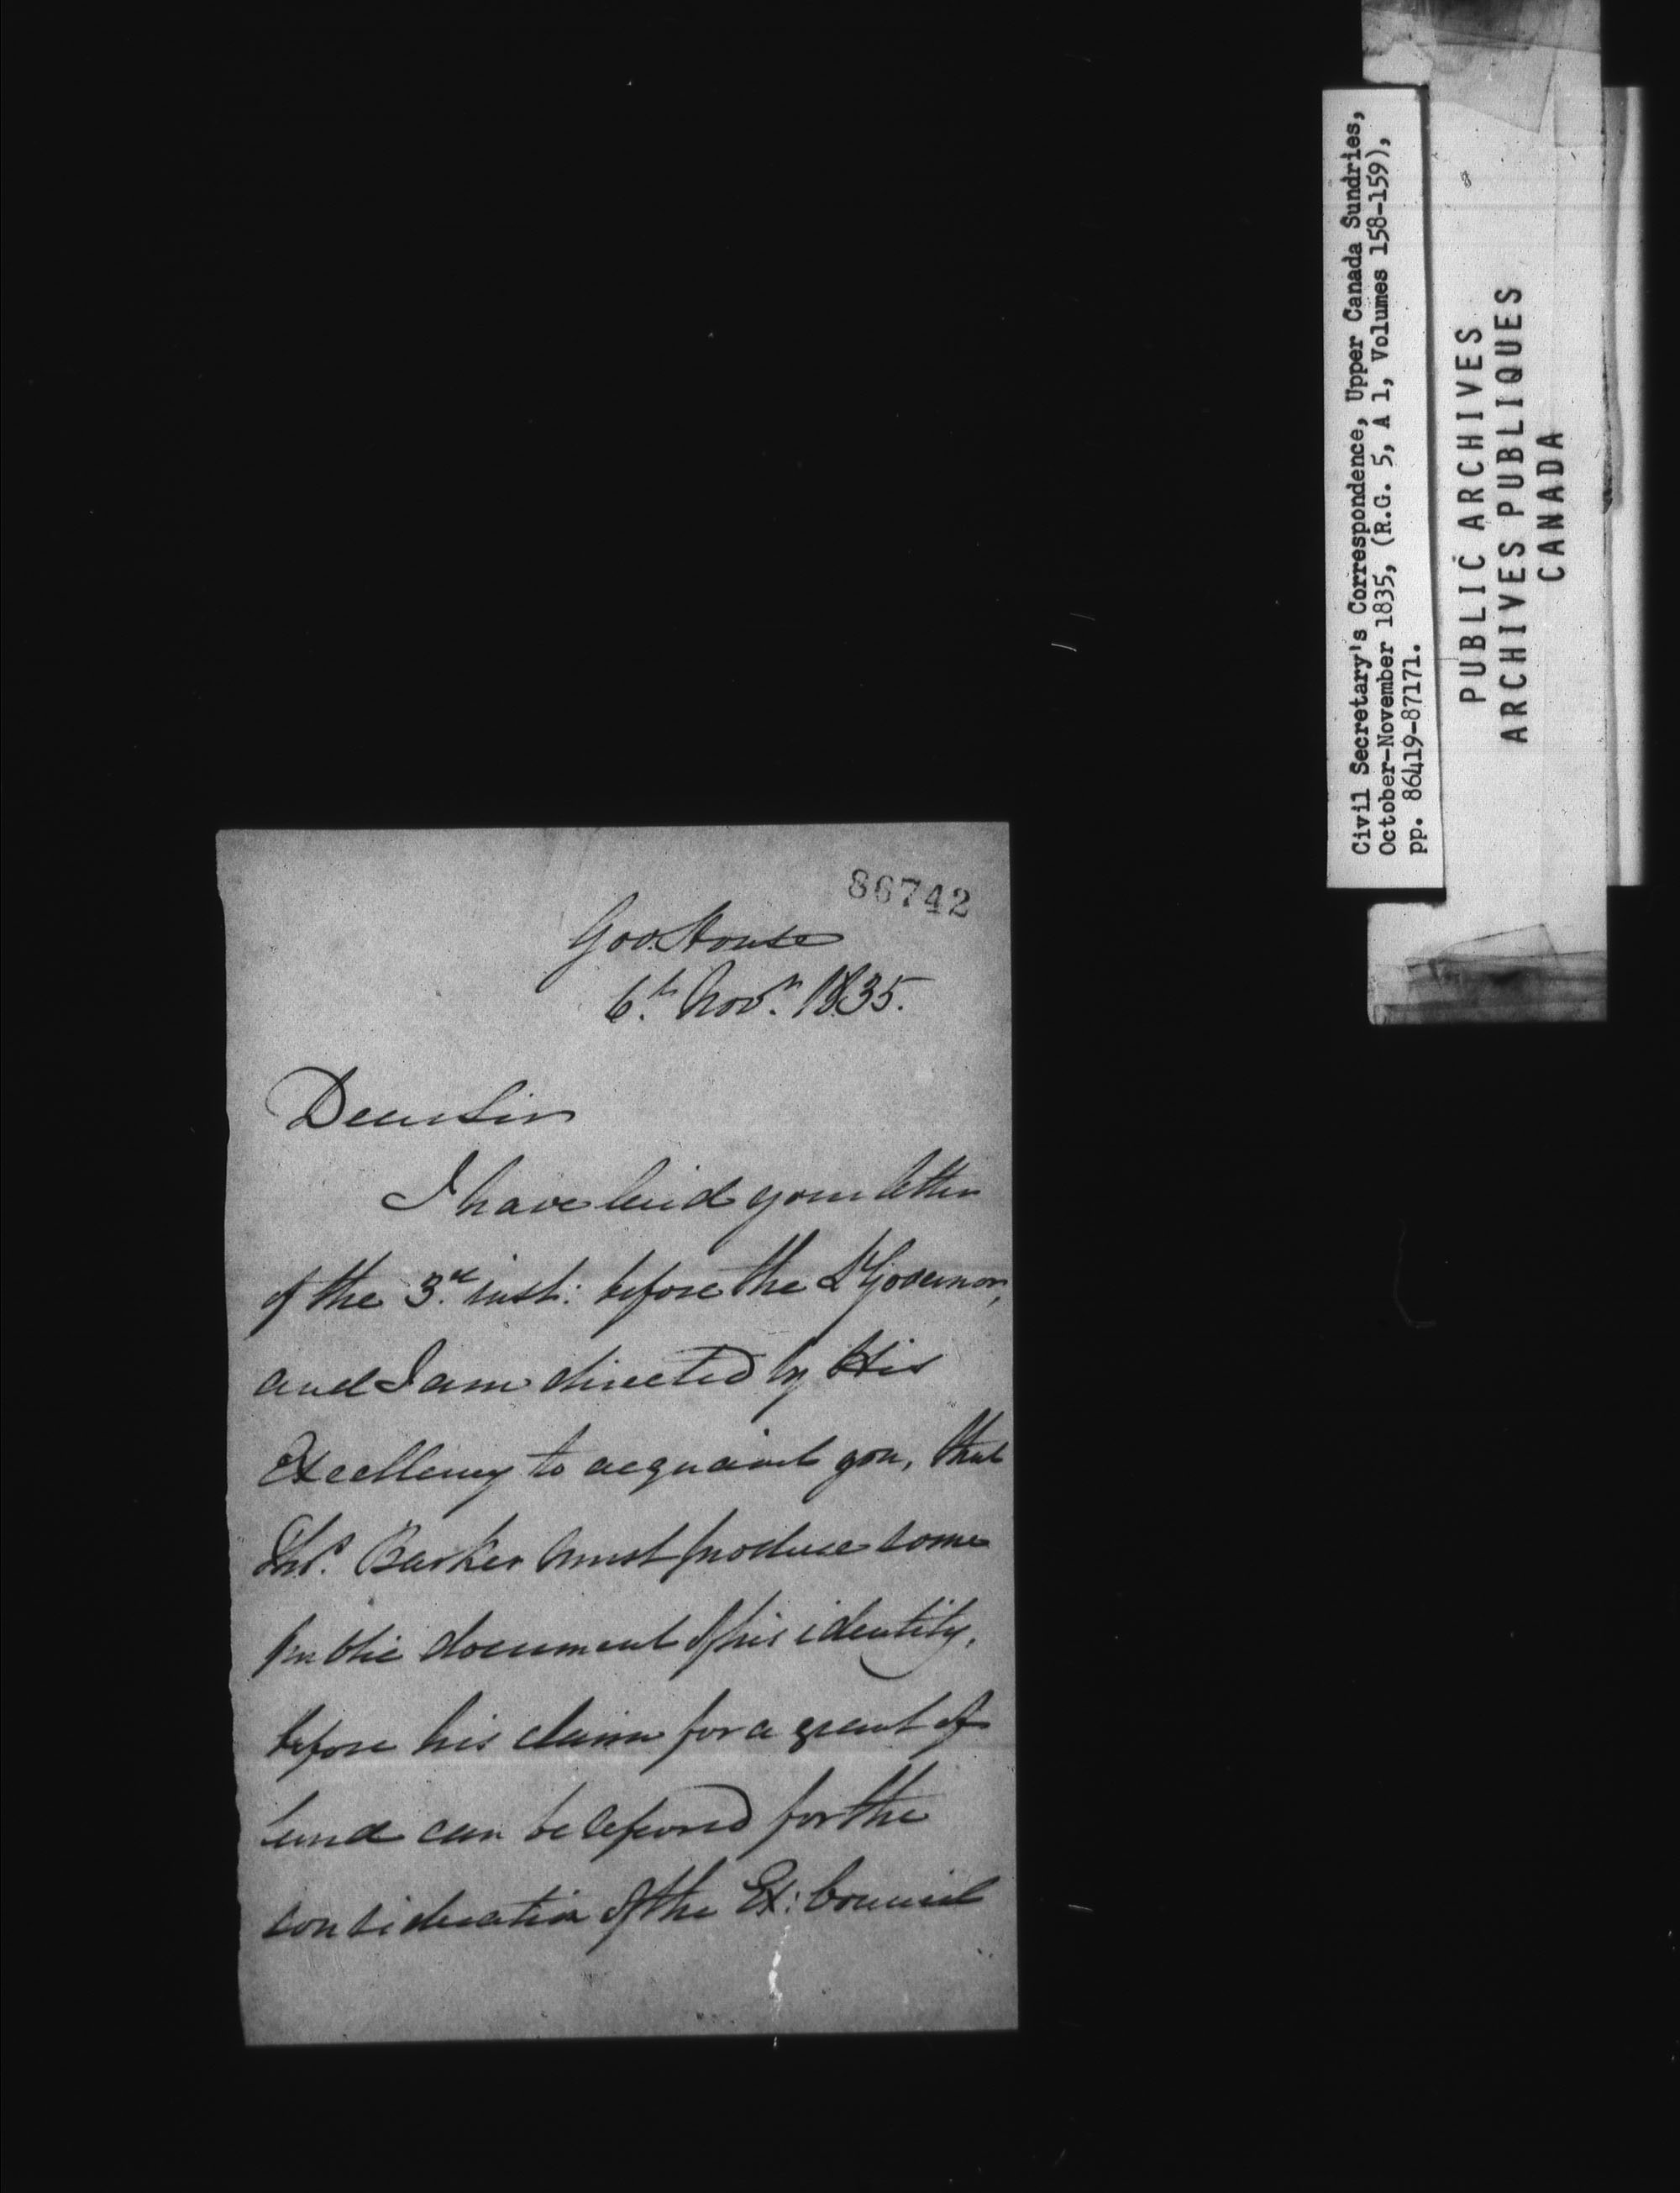 Civil Secretary's Correspondence, Upper Canada Sundries,
October-November 1835, (R.G. 5, A 1, Volumes 158-159),
pp. 86419-87171.
PUBLIC ARCHIVES
ARCHIVES PUBLIQUES
CANADA
86742
Gov. House
6th Novr. 1835.
Dear Sir
I have laid your letter
of the 3rd inst: before the Lt Governor,
and I am directed by His
Excellency to acquaint you, that
Thos. Barker must produce some
public document of his identity,
before his claim for a grant of
land can be refered for the
consideration of the Ex: Council